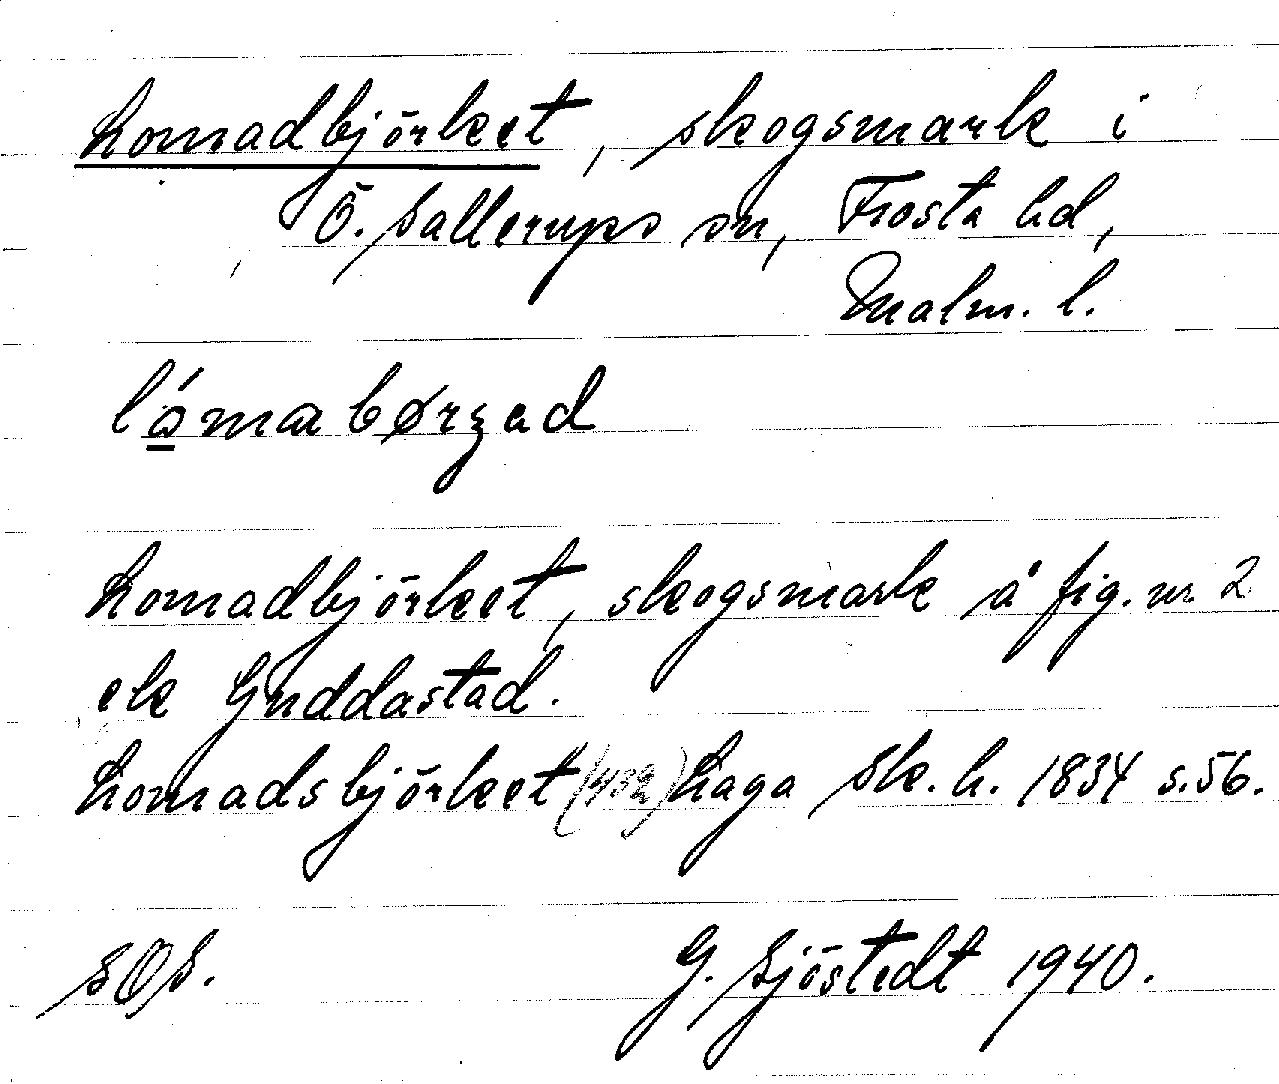 Lomadbjörket, skogsmark i
Ö. Sallerups sn, Frosta hd,
Malm. l.
lómabørzad
Lomadbjörket, skogsmark å fig. nr 2
ek Guddastad.
Lomadsbjörket Laga Sk. h. 1834 s. 56.
SOS. G. Sjöstedt 1940.